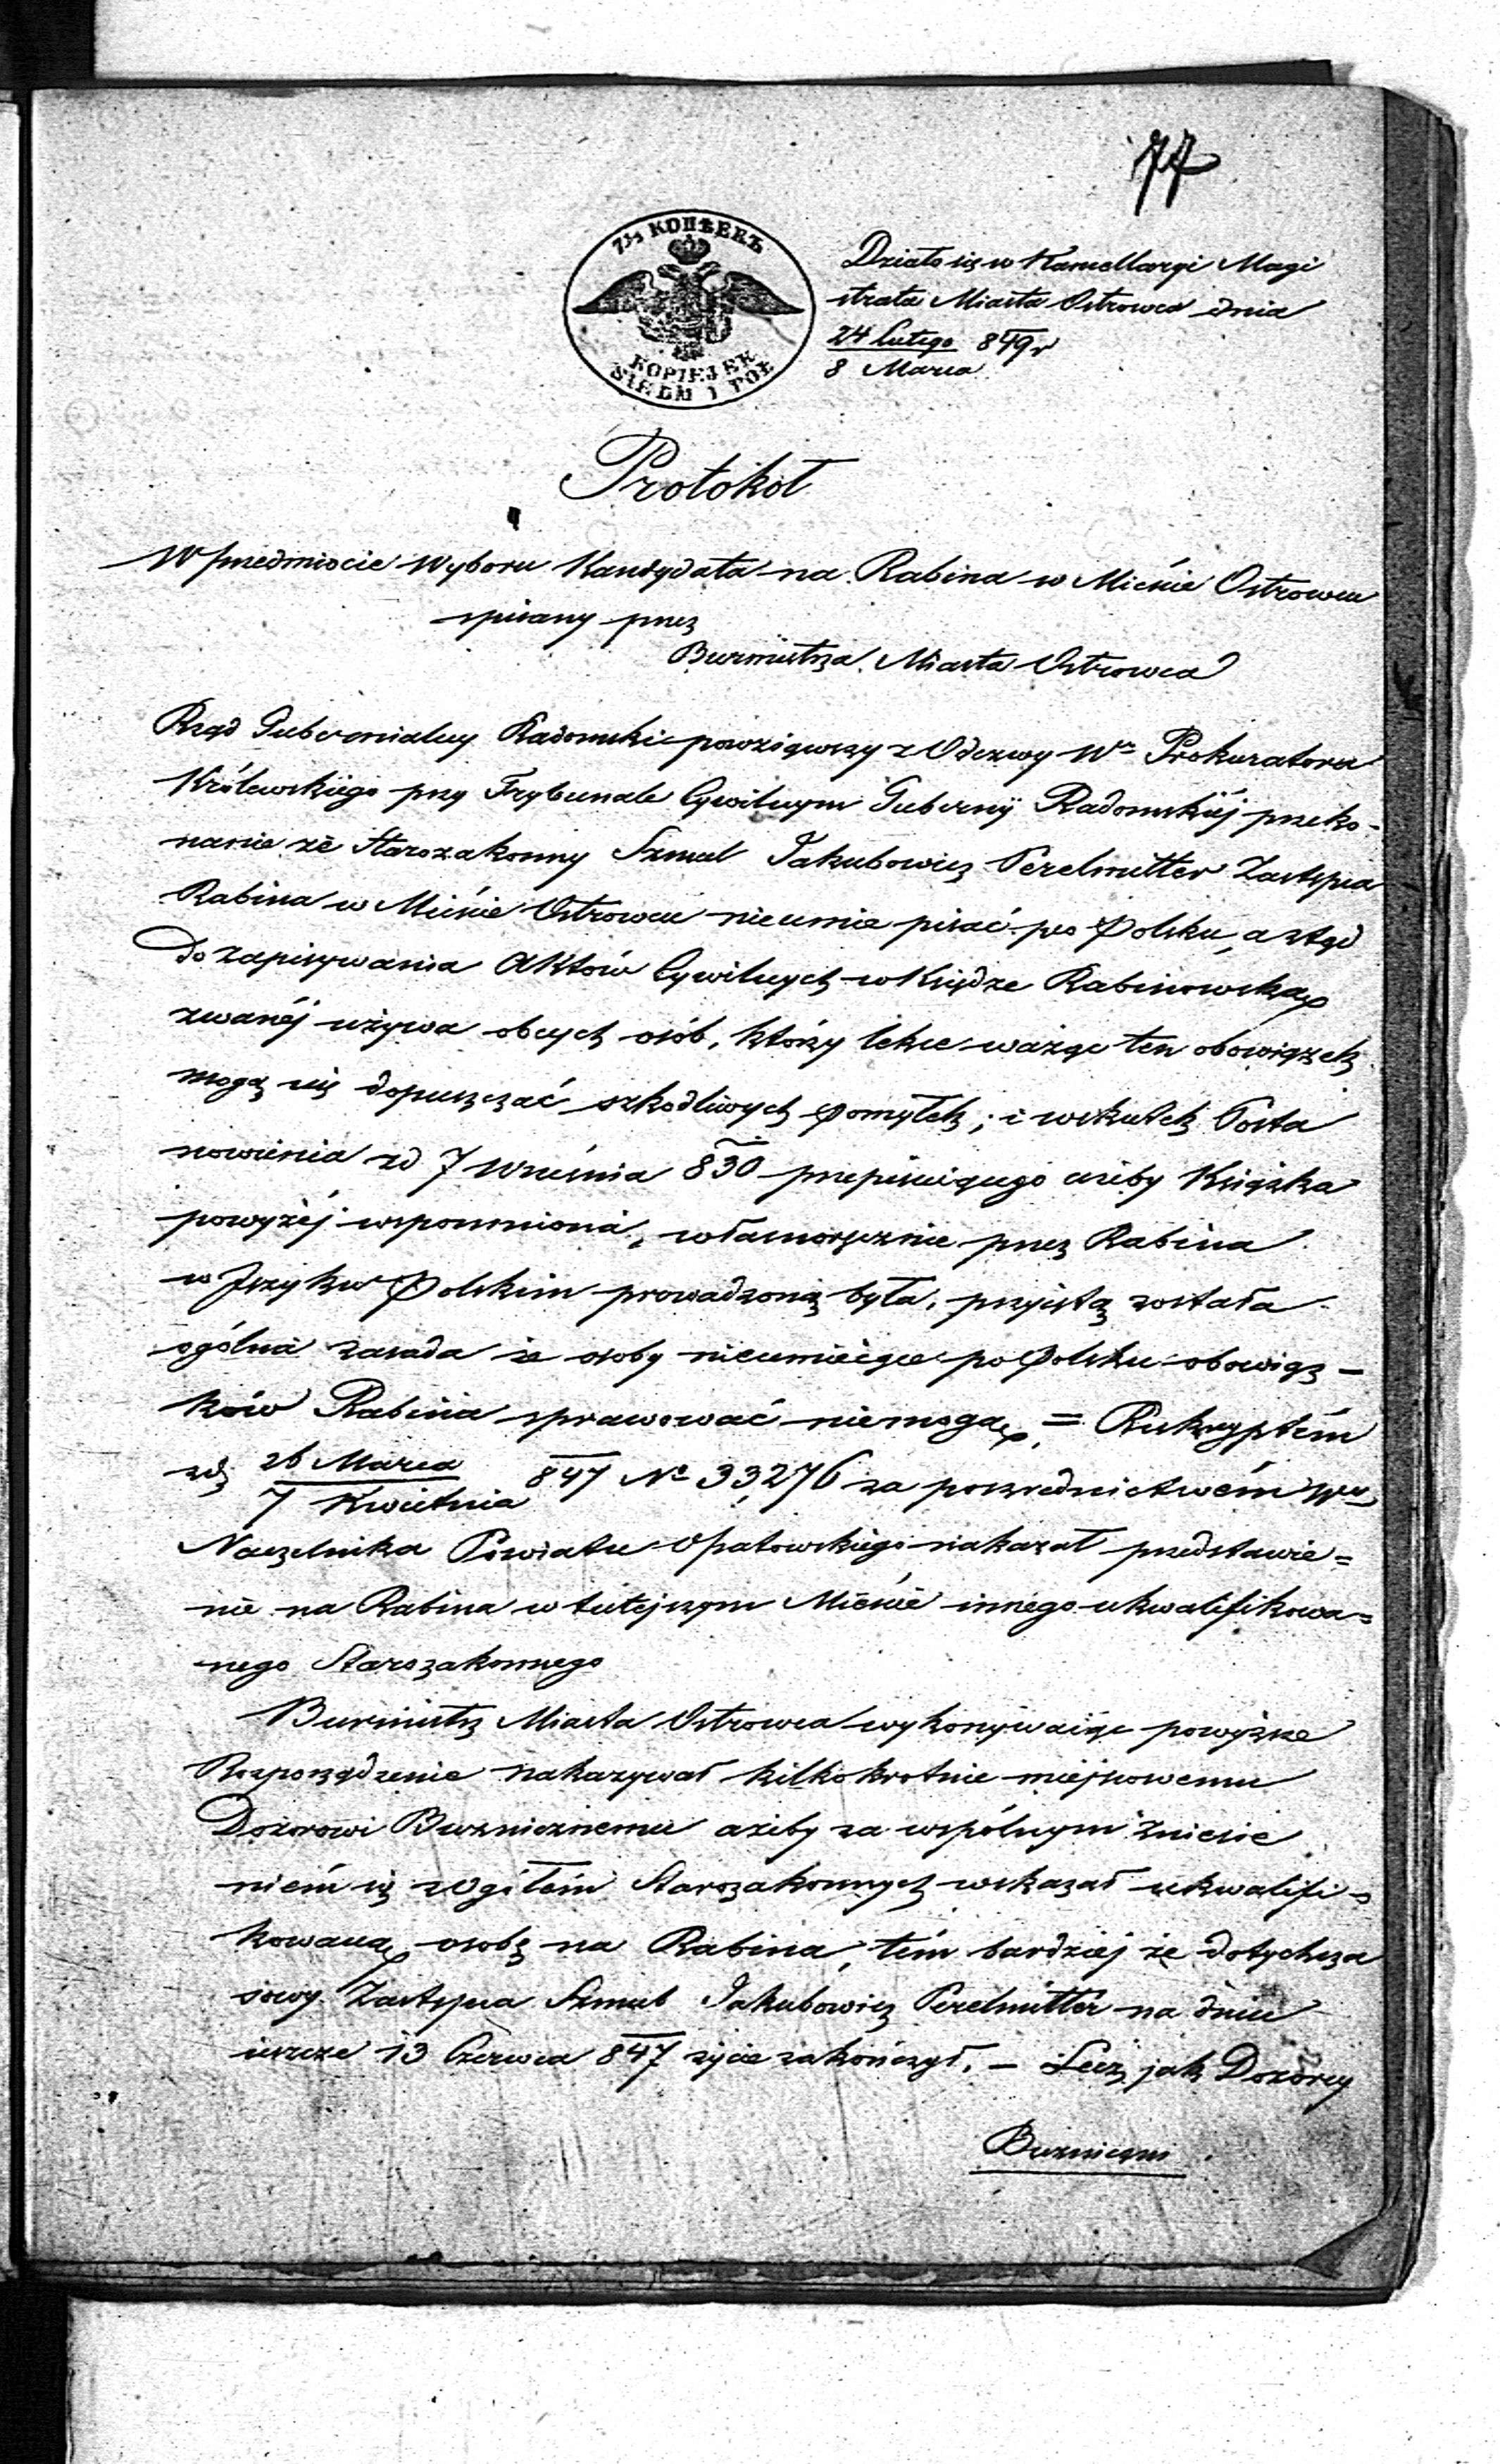 77
7½ КОПѢЕКЪ
KOPIEJEK
SIEDM I PÓŁ
Działo się w Kancellaryi Magi
strata Miasta Ostrowca dnia
24 Lutego 849 r
8 Marca
Protokół
W przedmiocie Wyboru Kandydata na Rabina w Mieście Ostrowcu
spisany przez
Burmistrza Miasta Ostrowca
Rząd Gubernialny Radomski powziąwszy z Odezwy Wo Prokuratora
Królewskiego przy Trybunale Cywilnym Gubernij Radomskiéj przeko-
nanie że Starozakonny Szmul Jakubowicz Perelmutter Zastępca
Rabina w Mieście Ostrowcu nieumie pisać po Polsku, a ztąd
do zapisywania Aktów Cywilnych w Księdze Rabinowską
zwanéj używa obcych osób, który lekce ważąc ten obowiązek
mogą się dopuszczać szkodliwych pomyłek; i wskutek Posta
nowienia zd 7 Września 830 przepisuiącego ażeby Książka
powyżéj wspomniona, własnoręcznie przez Rabina
w Języku Polskim prowadzoną była, przyjętą została
ogólna zasada że osoby nieumieiące po Polsku obowiąz-
ków Rabina sprawować niemogą, = Reskryptem
zd 26 Marca 847 No 33276 za pośrednictwem Wo
7 Kwietnia
Naczelnika Powiatu Opatowskiego nakazał przedstawie=
nie na Rabina w tutejszym Mieście innego ukwalifikowa=
nego Starozakonnego
Burmistrz Miasta Ostrowca wykonywaiąc powyższe
Rozporządzenie nakazywał kilkokrotnie miejscowemu
Dozorowi Bużnicznemu ażeby za wspólnym zniesie
niem się z Ogółem Starozakonnych wskazał ukwalifi-
kowaną osobę na Rabina, tém bardziej że dotychcza
sowy Zastępca Szmul Jakubowicz Perelmutter na dniu
ieszcze 13 Czerwca 847 życie zakończył. - Lecz jak Dozórcy
Bużniczni